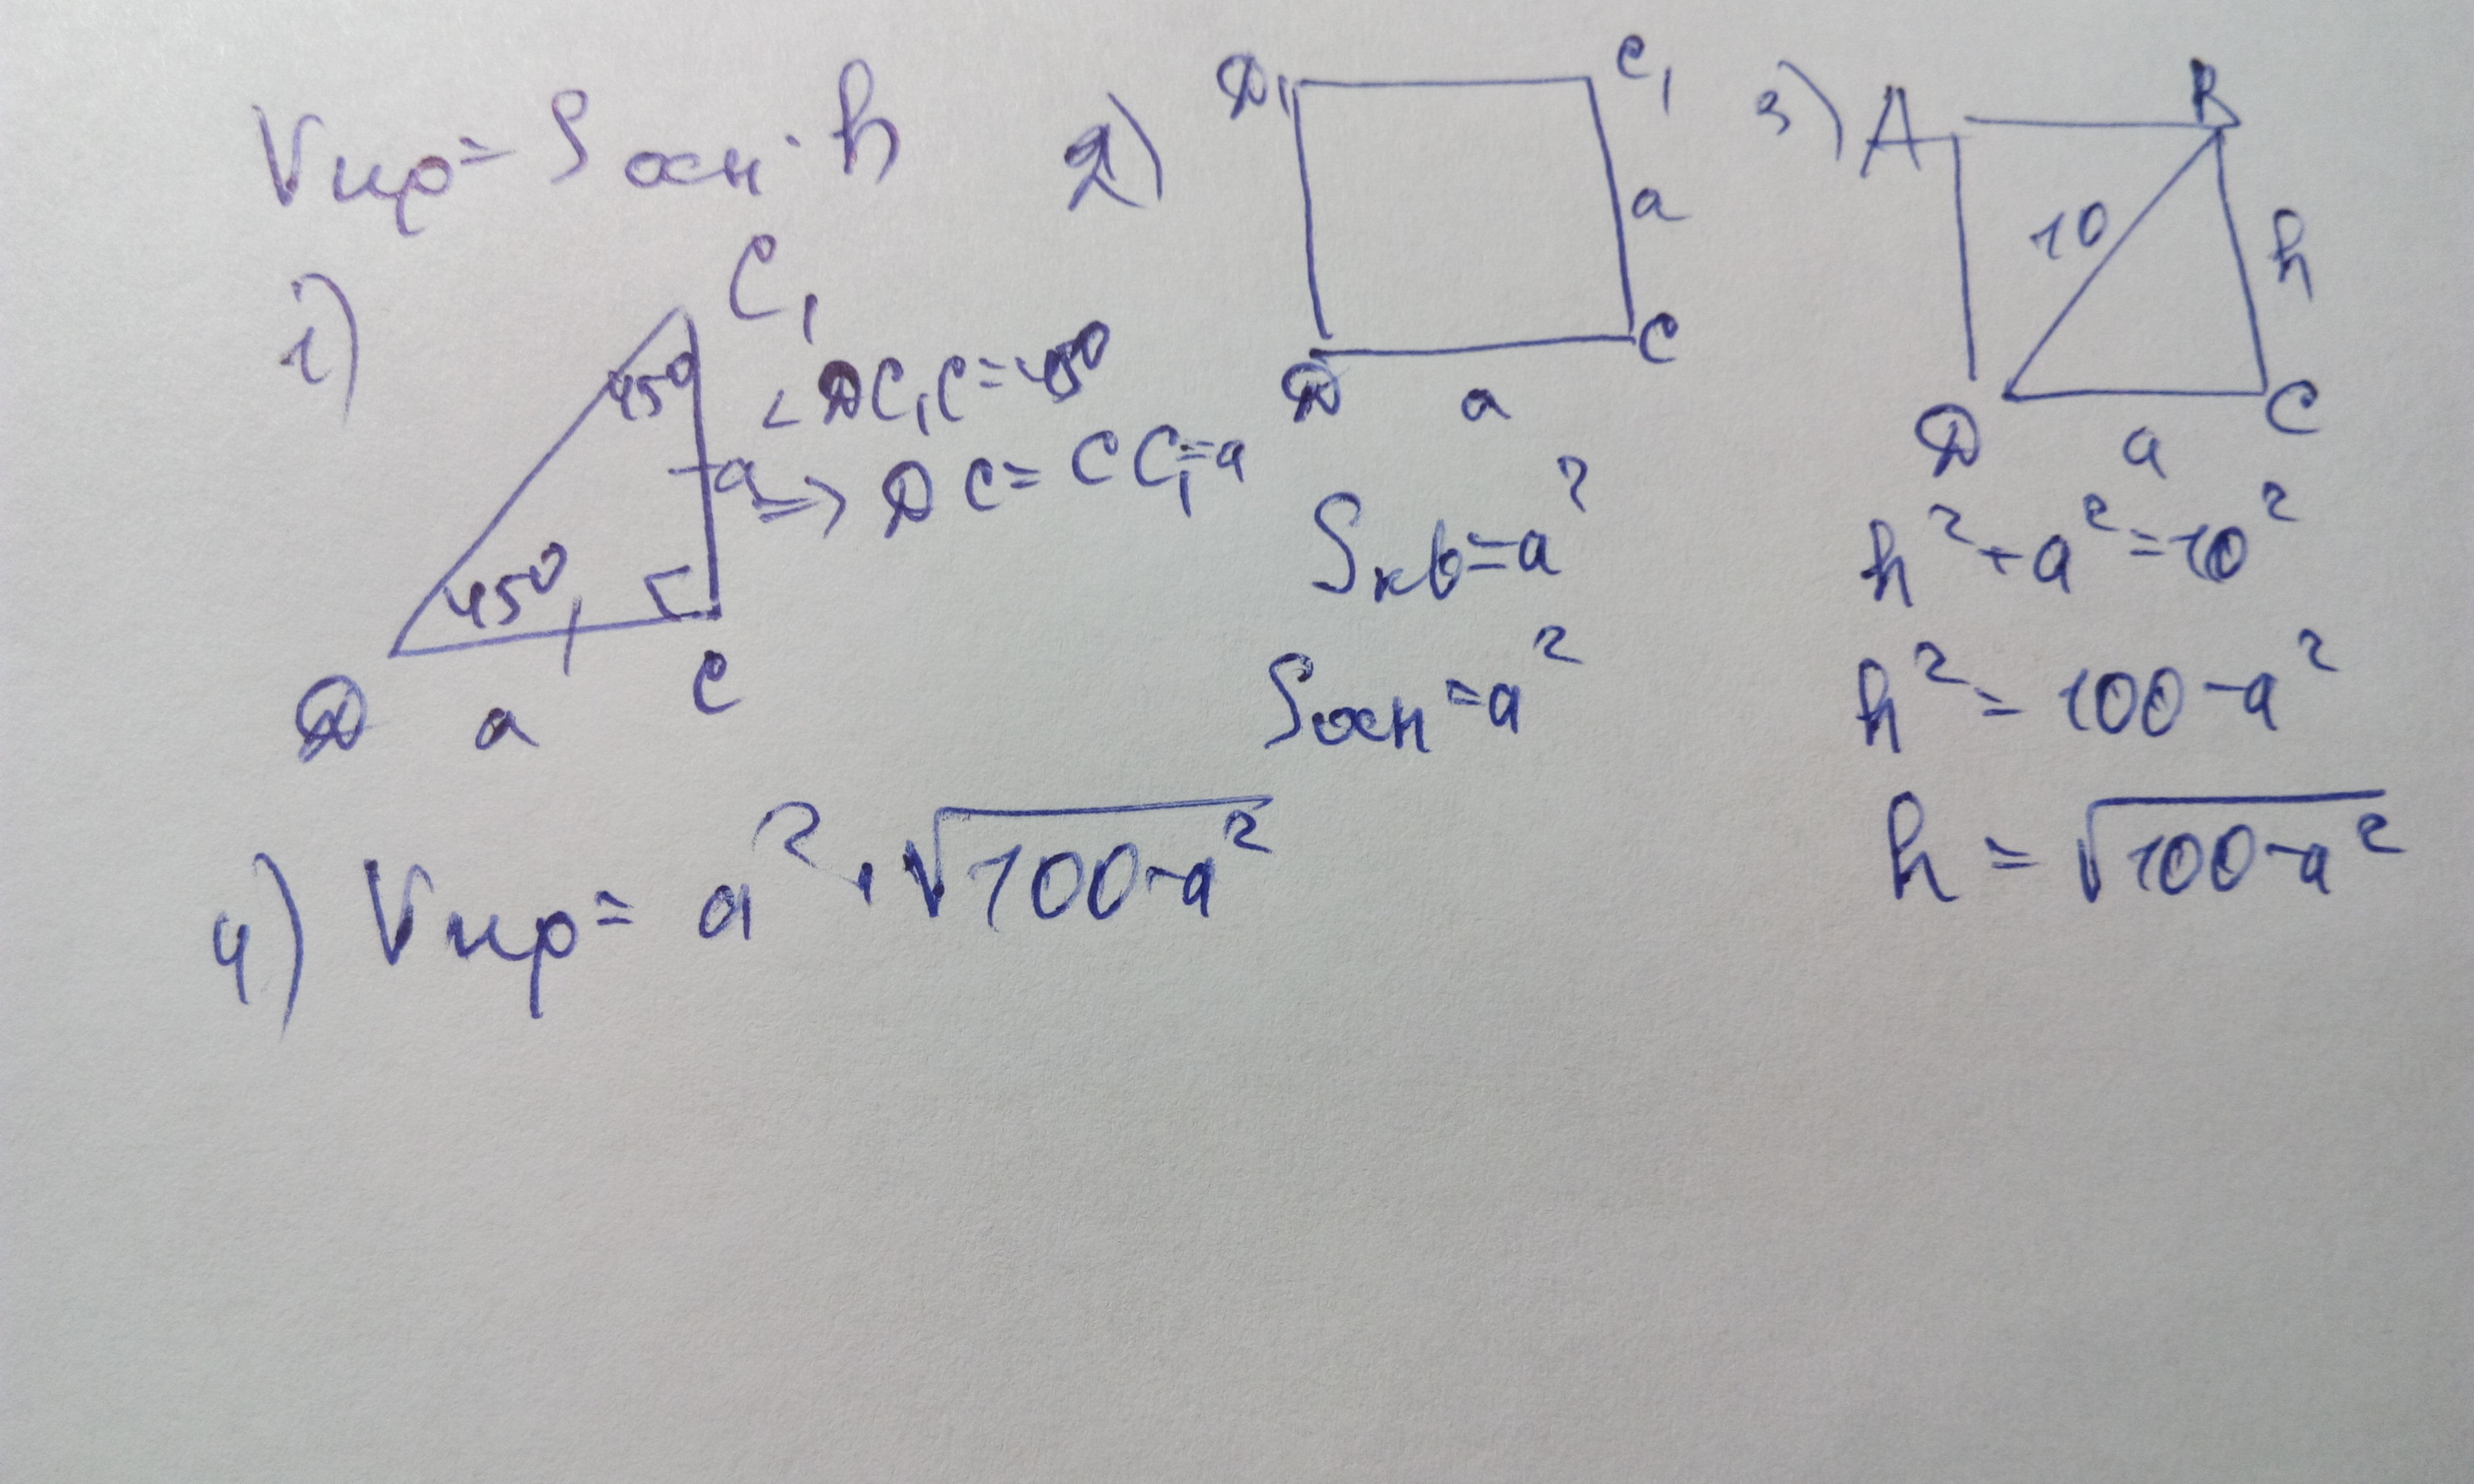 Vпр = Sосн · h
1)
C₁
45°
45°
a
D a C
∠DC₁C = 45°
=> DC = CC₁ = a
2)
D₁ C₁
a
D C
a
Sкв = a²
Sосн = a²
3) A B
10 h
D a C
h² + a² = 10²
h² = 100 - a²
h = √100 - a²
4) Vпр = a² · √100 - a²